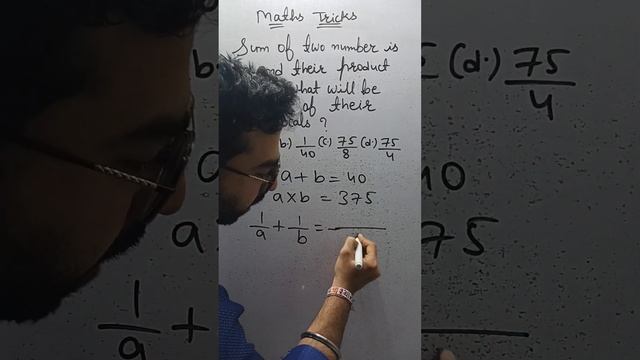 Maths Tricks
Sum of two number is
their product
what will be
of their
?
b.) 1/40 (c) 75/8 (d.) 75/4
a + b = 40
a x b = 375
1/a + 1/b =